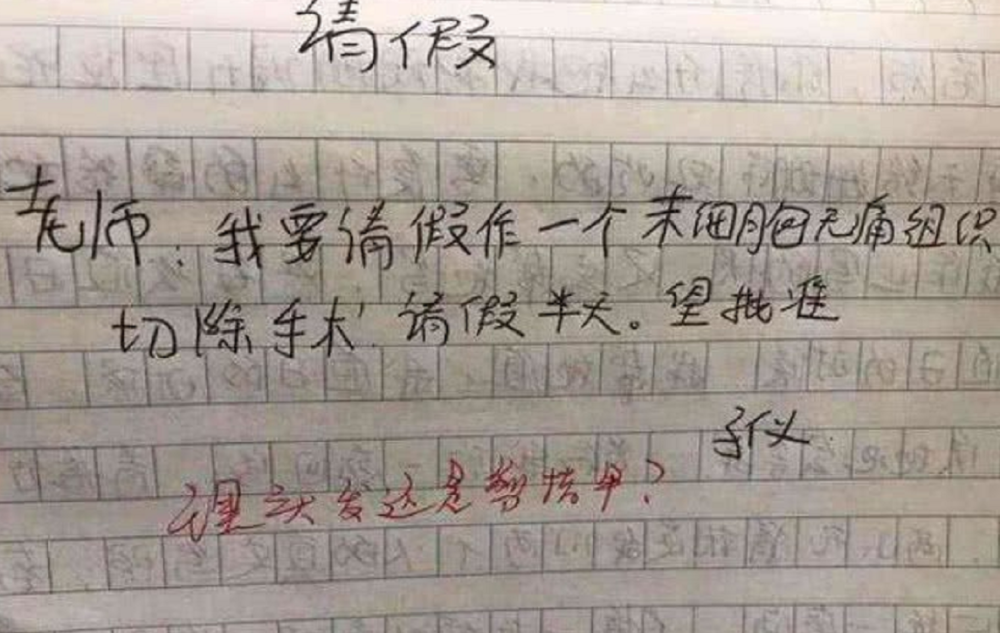 请假
老师：我要请假作一个末细胞无痛组织
切除手术，请假半天。望批准
子仪
理头发还是剪指甲？